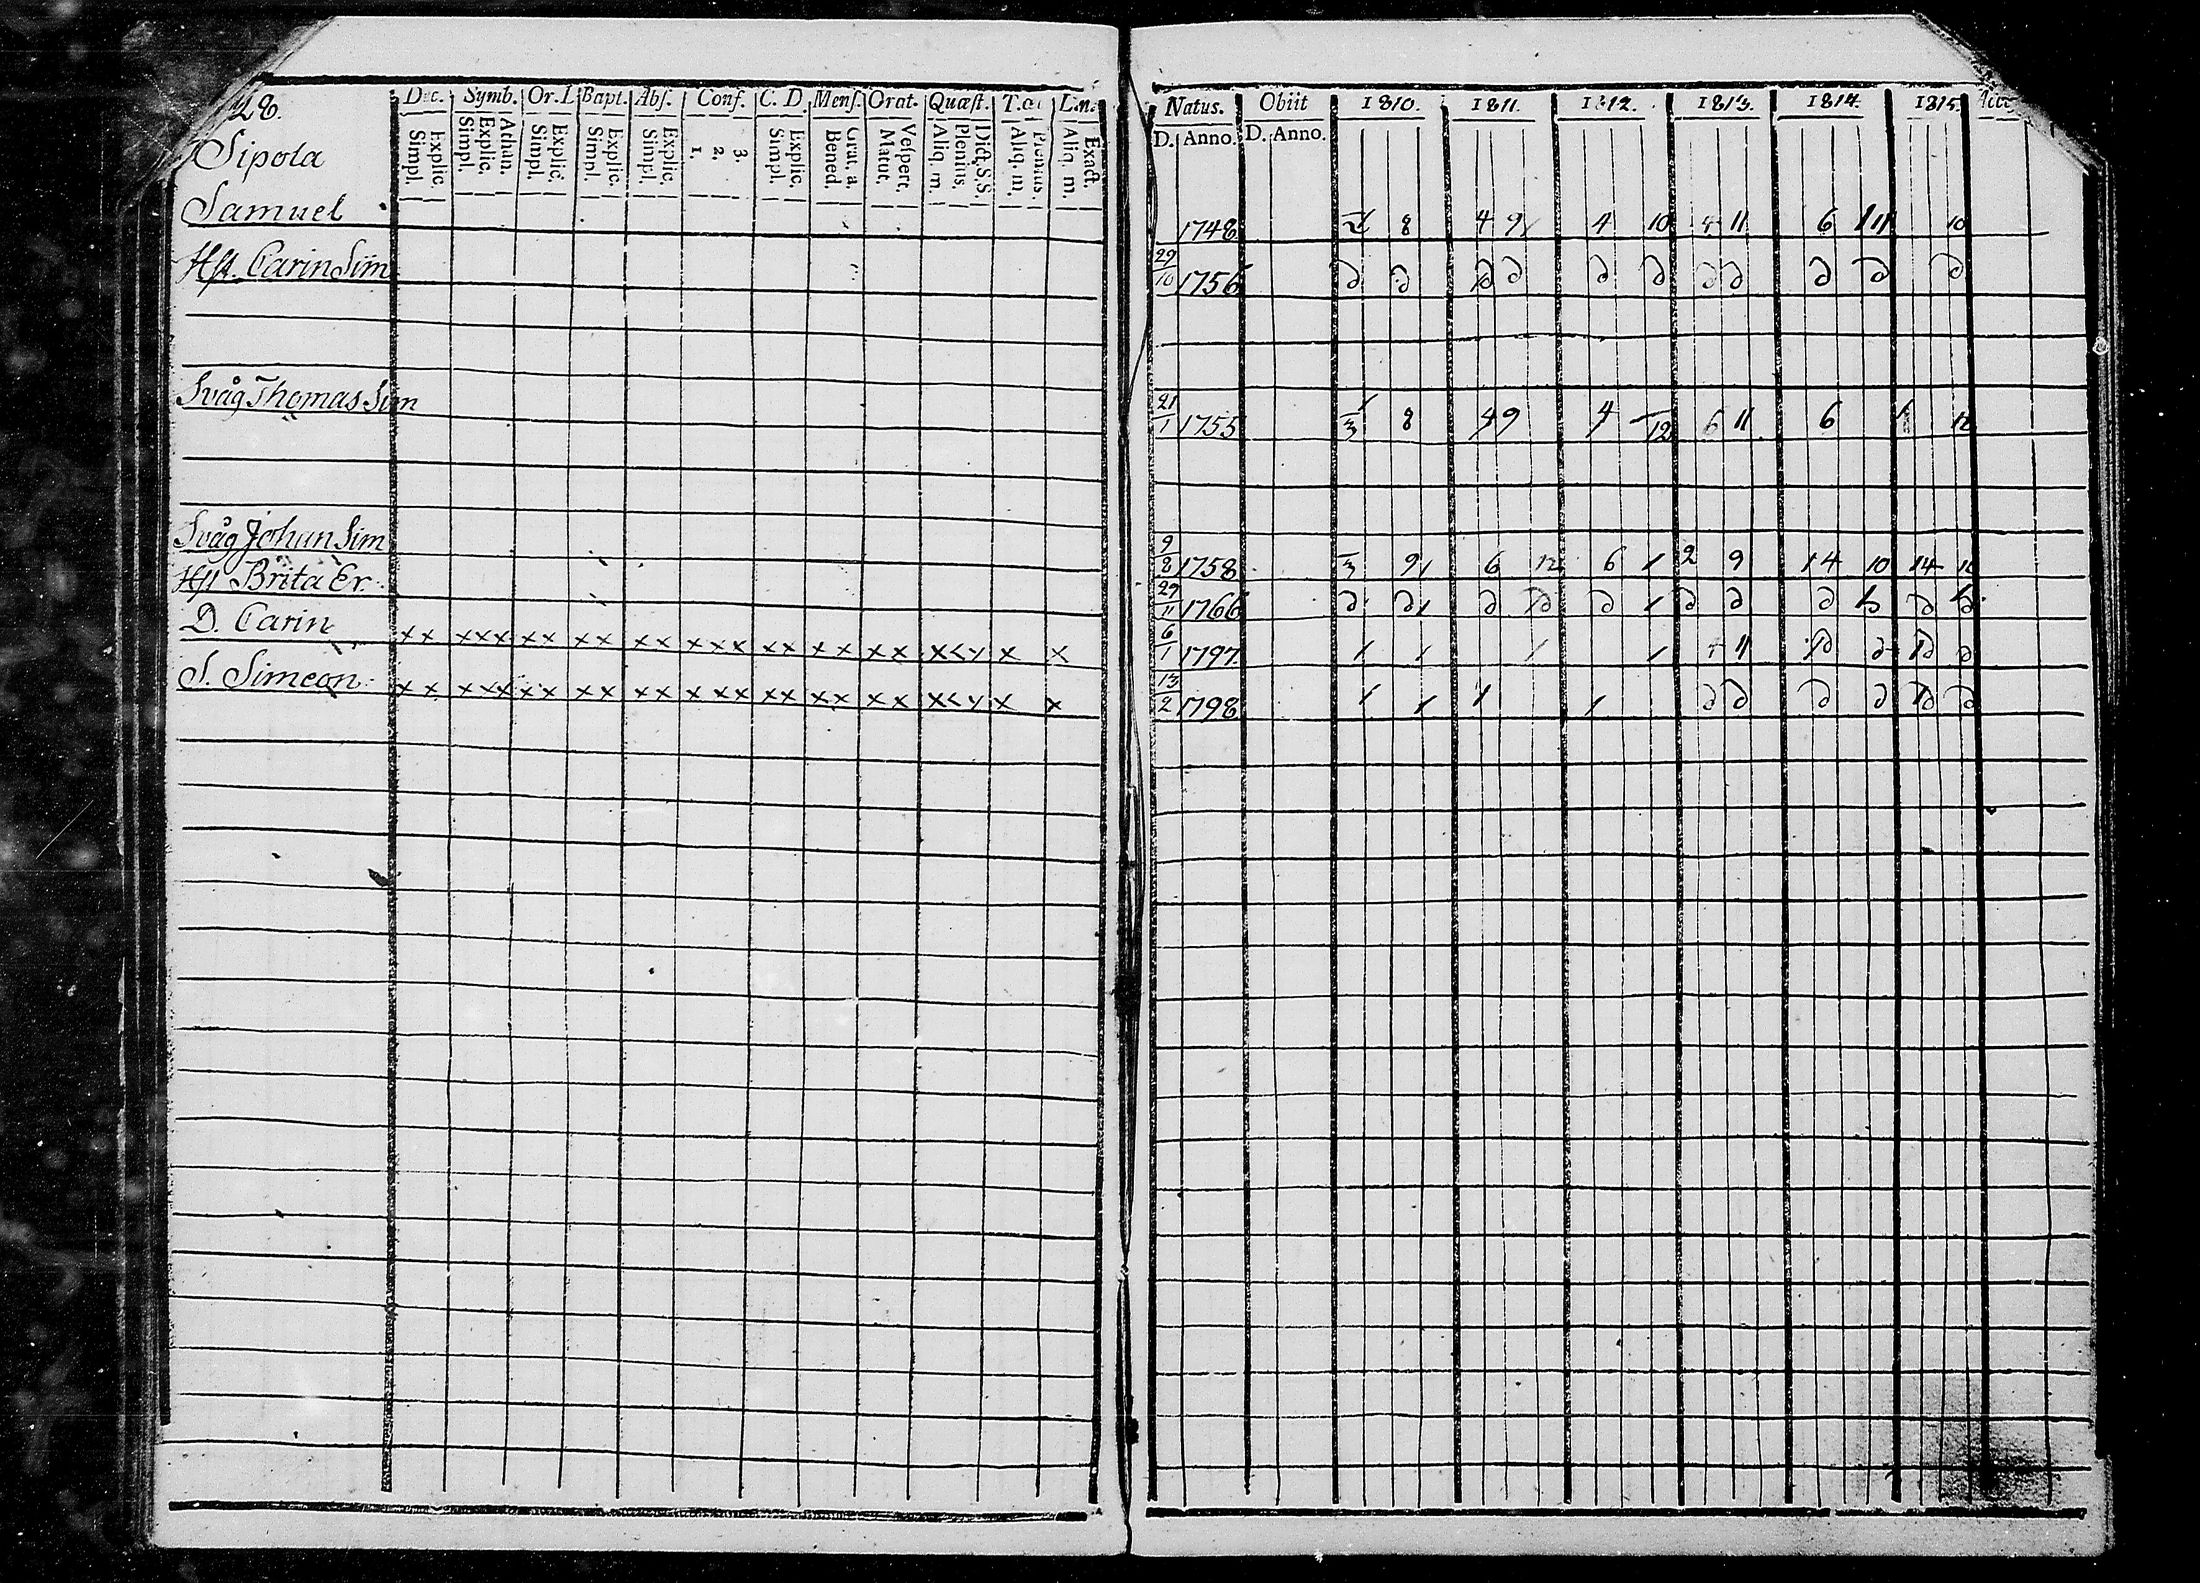 28.
Dec. Symb. Or. D Bapt. Abs. Conf. C. D. Mens. Orat. Quæst.
Simpl. Explic. Simpl. Explic. Athan. Simpl. Explic. Simpl. Explic. Simpl. Explic. 1. 2. 3. Simpl. Explic. Bened. Grat. a. Matut. Vespert. Aliq. m. Plenius. Dict. S.S. Aliq. m. Plenius. Aliq. m. Exact.
Natus. Obiit 1810. 1811. 1812. 1813. 1814. 1815.
D. Anno. D. Anno.
Sipola
Samuel 1748 8 4 9 4 10 4 11 6 11 10
Hst. Carin Sim 29/10 1756
Svåg Thomas Sim 21/1 1755 8 4 9 4 12 6 11 6
Svåg Johan Sim 9/8 1758 3 9 6 12 6 1 2 9 14 10 14
Hst Brita Er. 29/11 1766
D. Carin x x x x x x x x x x x x x x x x x x x x x x x x x 6/1 1797 4 11
S. Simeon x x x x x x x x x x x x x x x x x x x x x x x x x 13/2 1798